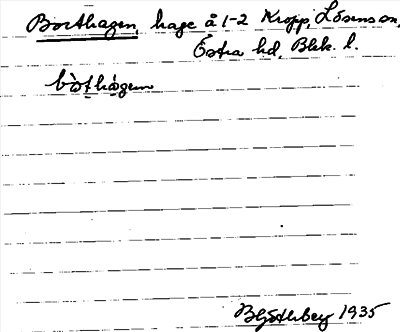 Borthagen, hage å 1-2 Kropp, Lösens sn,
Östra hd, Blek. l.
bòt̠hàgen
1935